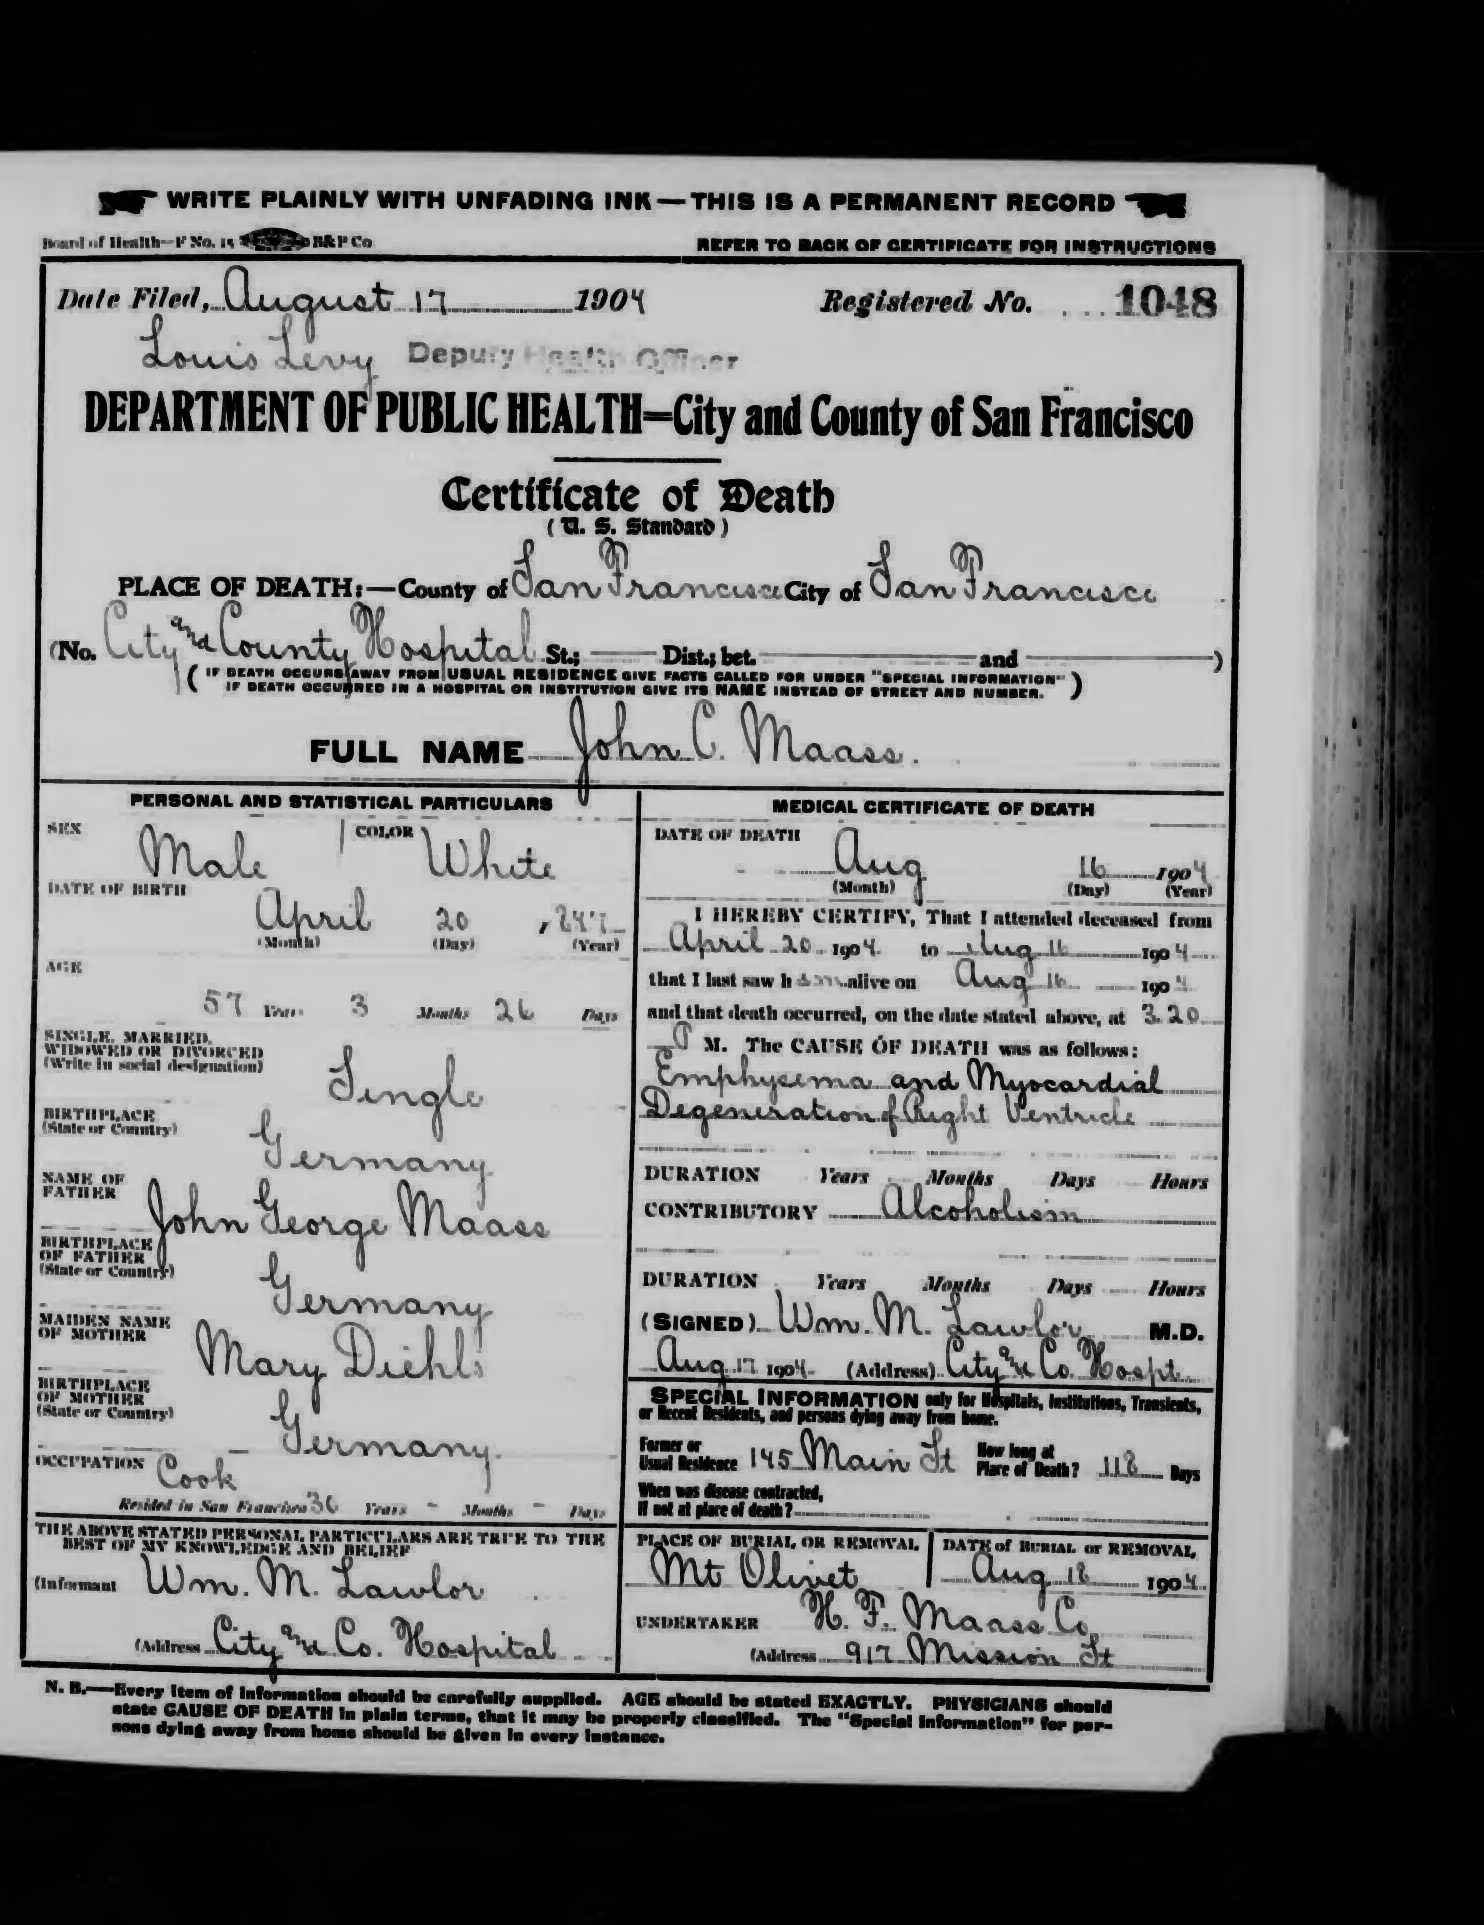 WRITE PLAINLY WITH UNFADING INK — THIS IS A PERMANENT RECORD
Board of Health—F No. 15 B&P Co
REFER TO BACK OF CERTIFICATE FOR INSTRUCTIONS
Date Filed, August 17 1904 Registered No. 1048
Louis Levy Deputy Health Officer
DEPARTMENT OF PUBLIC HEALTH=City and County of San Francisco
Certificate of Death
(U. S. Standard)
PLACE OF DEATH:—County of San Francisco City of San Francisco
(No. City and County Hospital St.; Dist.; bet. and )
(IF DEATH OCCURS AWAY FROM USUAL RESIDENCE GIVE FACTS CALLED FOR UNDER "SPECIAL INFORMATION"
IF DEATH OCCURRED IN A HOSPITAL OR INSTITUTION GIVE ITS NAME INSTEAD OF STREET AND NUMBER.)
FULL NAME John C. Maass.
PERSONAL AND STATISTICAL PARTICULARS
SEX Male COLOR White
DATE OF BIRTH
April 20 , 847
(Month) (Day) (Year)
AGE
57 Years 3 Months 26 Days
SINGLE, MARRIED,
WIDOWED OR DIVORCED
(Write in social designation) Single
BIRTHPLACE
(State or Country) Germany
NAME OF
FATHER John George Maass
BIRTHPLACE
OF FATHER
(State or Country) Germany
MAIDEN NAME
OF MOTHER Mary Diehls
BIRTHPLACE
OF MOTHER
(State or Country) Germany.
OCCUPATION Cook
Resided in San Francisco 36 Years - Months - Days
THE ABOVE STATED PERSONAL PARTICULARS ARE TRUE TO THE
BEST OF MY KNOWLEDGE AND BELIEF
(Informant Wm. M. Lawlor
(Address City and Co. Hospital
MEDICAL CERTIFICATE OF DEATH
DATE OF DEATH
Aug 16 1904
(Month) (Day) (Year)
I HEREBY CERTIFY, That I attended deceased from
April 20 1904 to Aug 16 1904
that I last saw h im alive on Aug 16 1904
and that death occurred, on the date stated above, at 3.20
P M. The CAUSE OF DEATH was as follows:
Emphysema and Myocardial
Degeneration of Right Ventricle
DURATION Years Months Days Hours
CONTRIBUTORY Alcoholism
DURATION Years Months Days Hours
(SIGNED) Wm. M. Lawlor M.D.
Aug 17 1904 (Address) City and Co. Hospt.
SPECIAL INFORMATION only for Hospitals, Institutions, Transients,
or Recent Residents, and persons dying away from home.
Former or
Usual Residence 145 Main St How long at
Place of Death? 118 Days
When was disease contracted,
If not at place of death?
PLACE OF BURIAL OR REMOVAL
Mt Olivet
DATE of BURIAL or REMOVAL
Aug 18 1904
UNDERTAKER H. F. Maass Co
(Address 917 Mission St
N. B.—Every item of information should be carefully supplied. AGE should be stated EXACTLY. PHYSICIANS should
state CAUSE OF DEATH in plain terms, that it may be properly classified. The "Special Information" for per-
sons dying away from home should be given in every instance.